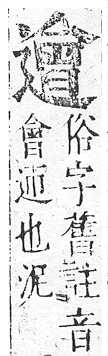 𨗥
俗字舊註音
會迊也泥